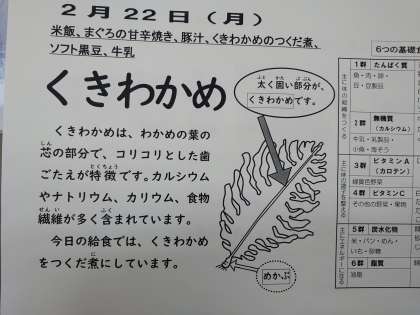 2月22日(月)
米飯、まぐろの甘辛焼き、豚汁、くきわかめのつくだ煮、
ソフト黒豆、牛乳
くきわかめ
太く固い部分が、
くきわかめです。
くきわかめは、わかめの葉の
芯の部分で、コリコリとした歯
ごたえが特徴です。カルシウム
やナトリウム、カリウム、食物
繊維が多く含まれています。
今日の給食では、くきわかめ
をつくだ煮にしています。
めかぶ
6つの基礎食
主に体の組織をつくる
1群 たんぱく質
魚・肉・卵・
豆・豆製品
2群 無機質
(カルシウム)
牛乳・乳製品・
小魚・海そう
主に体の調子を整える
3群 ビタミンA
(カロテン)
緑黄色野菜
4群 ビタミンC
その他の野菜・果物
主にエネルギーになる
5群 炭水化物
米・パン・めん・
いも・砂糖
6群 脂質
油脂